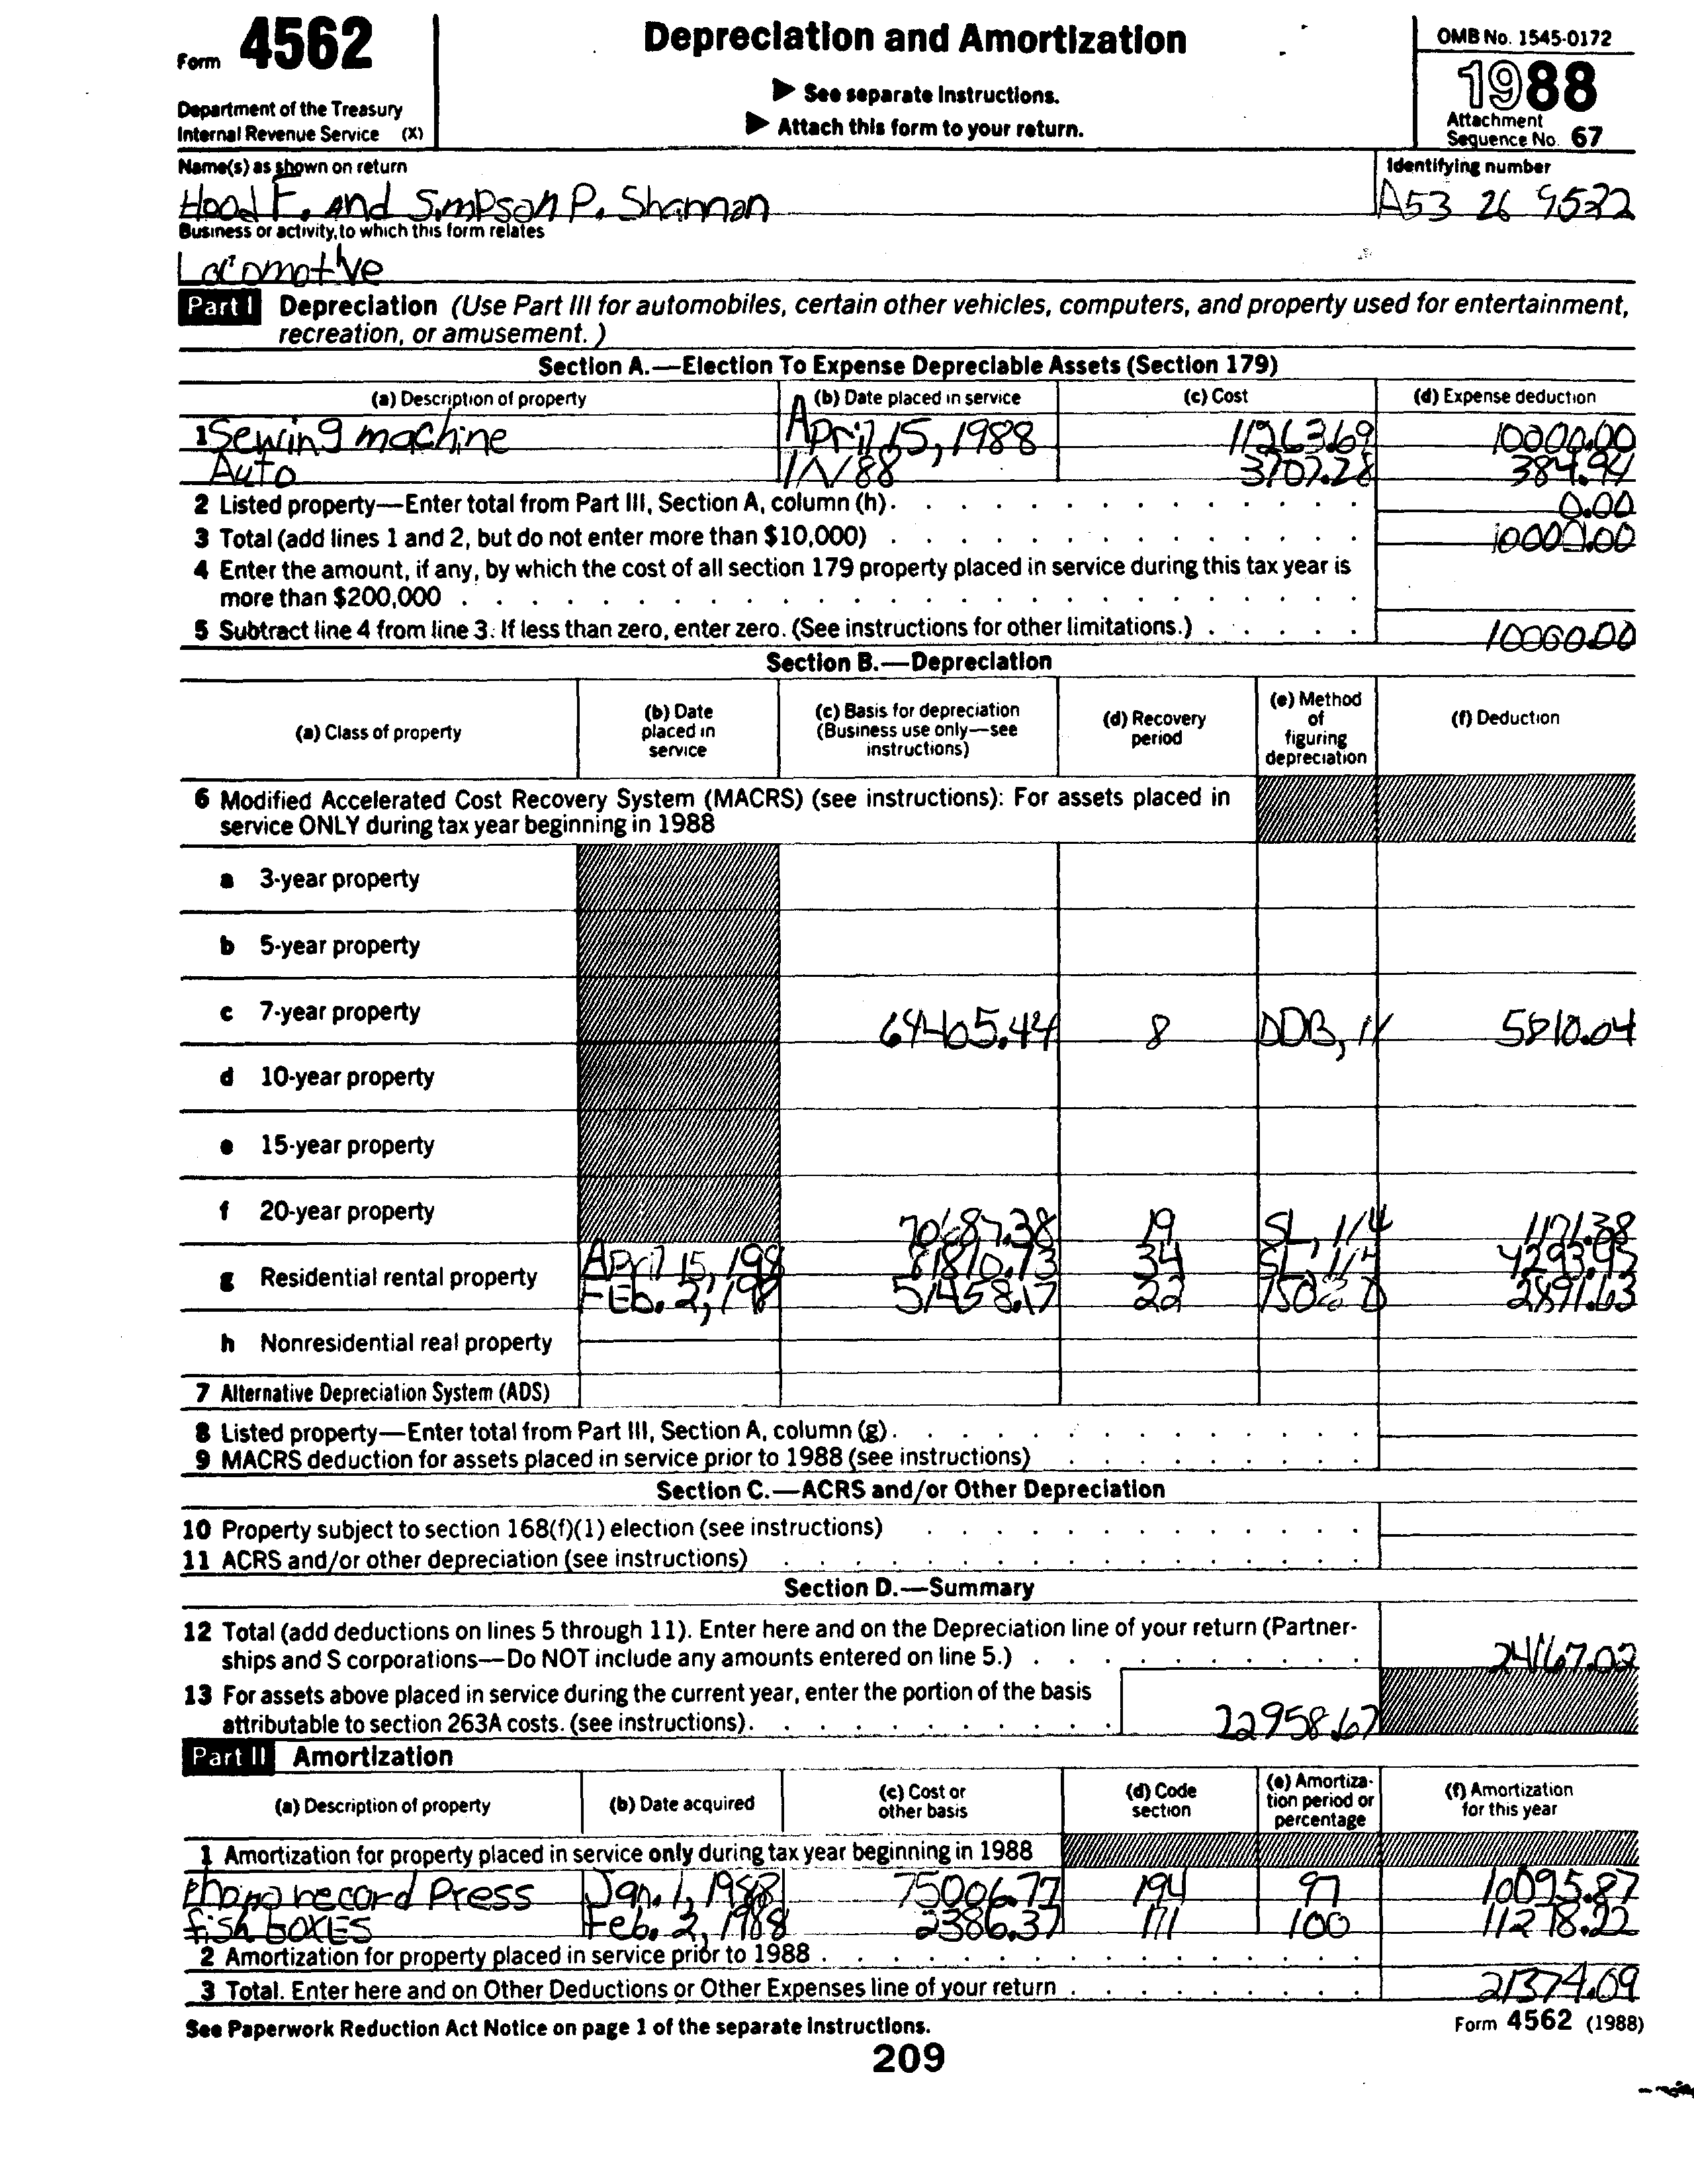 Form 4562
Department of the Treasury
Internal Revenue Service (X)
Depreciation and Amortization
▶ See separate Instructions.
▶ Attach this form to your return.
OMB No. 1545-0172
1988
Attachment
Sequence No. 67
Name(s) as shown on return
Hood F. and Simpson P. Shannan
Identifying number
A53 26 9522
Business or activity to which this form relates
Locomotive
Part I Depreciation (Use Part III for automobiles, certain other vehicles, computers, and property used for entertainment,
recreation, or amusement.)
Section A.—Election To Expense Depreciable Assets (Section 179)
(a) Description of property (b) Date placed in service (c) Cost (d) Expense deduction
1 Sewing machine April 15, 1988 11263.69 10000.00
Auto 1/1/88 3707.28 384.94
2 Listed property—Enter total from Part III, Section A, column (h). 0.00
3 Total (add lines 1 and 2, but do not enter more than $10,000) 10000.00
4 Enter the amount, if any, by which the cost of all section 179 property placed in service during this tax year is
more than $200,000
5 Subtract line 4 from line 3. If less than zero, enter zero. (See instructions for other limitations.) 10000.00
Section B.—Depreciation
(a) Class of property (b) Date placed in service (c) Basis for depreciation (Business use only—see instructions) (d) Recovery period (e) Method of figuring depreciation (f) Deduction
6 Modified Accelerated Cost Recovery System (MACRS) (see instructions): For assets placed in
service ONLY during tax year beginning in 1988
a 3-year property
b 5-year property
c 7-year property 8 DDB, 5810.04
d 10-year property
e 15-year property
f 20-year property 70687.38 19 SL, 1/4 1171.38
g Residential rental property April 15, 198 81810.73 34 SL, 4293.95
Feb. 2, 198 51458.17 22 2891.63
h Nonresidential real property
7 Alternative Depreciation System (ADS)
8 Listed property—Enter total from Part III, Section A, column (g).
9 MACRS deduction for assets placed in service prior to 1988 (see instructions)
Section C.—ACRS and/or Other Depreciation
10 Property subject to section 168(f)(1) election (see instructions)
11 ACRS and/or other depreciation (see instructions)
Section D.—Summary
12 Total (add deductions on lines 5 through 11). Enter here and on the Depreciation line of your return (Partner-
ships and S corporations—Do NOT include any amounts entered on line 5.) 24167.02
13 For assets above placed in service during the current year, enter the portion of the basis
attributable to section 263A costs. (see instructions). 22958.67
Part II Amortization
(a) Description of property (b) Date acquired (c) Cost or other basis (d) Code section (e) Amortiza-tion period or percentage (f) Amortization for this year
1 Amortization for property placed in service only during tax year beginning in 1988
Phono record Press Jan. 1, 1988 75006.77 194 97 10095.87
fish boxes Feb. 2, 1988 2386.37 171 100 11278.22
2 Amortization for property placed in service prior to 1988
3 Total. Enter here and on Other Deductions or Other Expenses line of your return 21374.09
See Paperwork Reduction Act Notice on page 1 of the separate Instructions.
Form 4562 (1988)
209